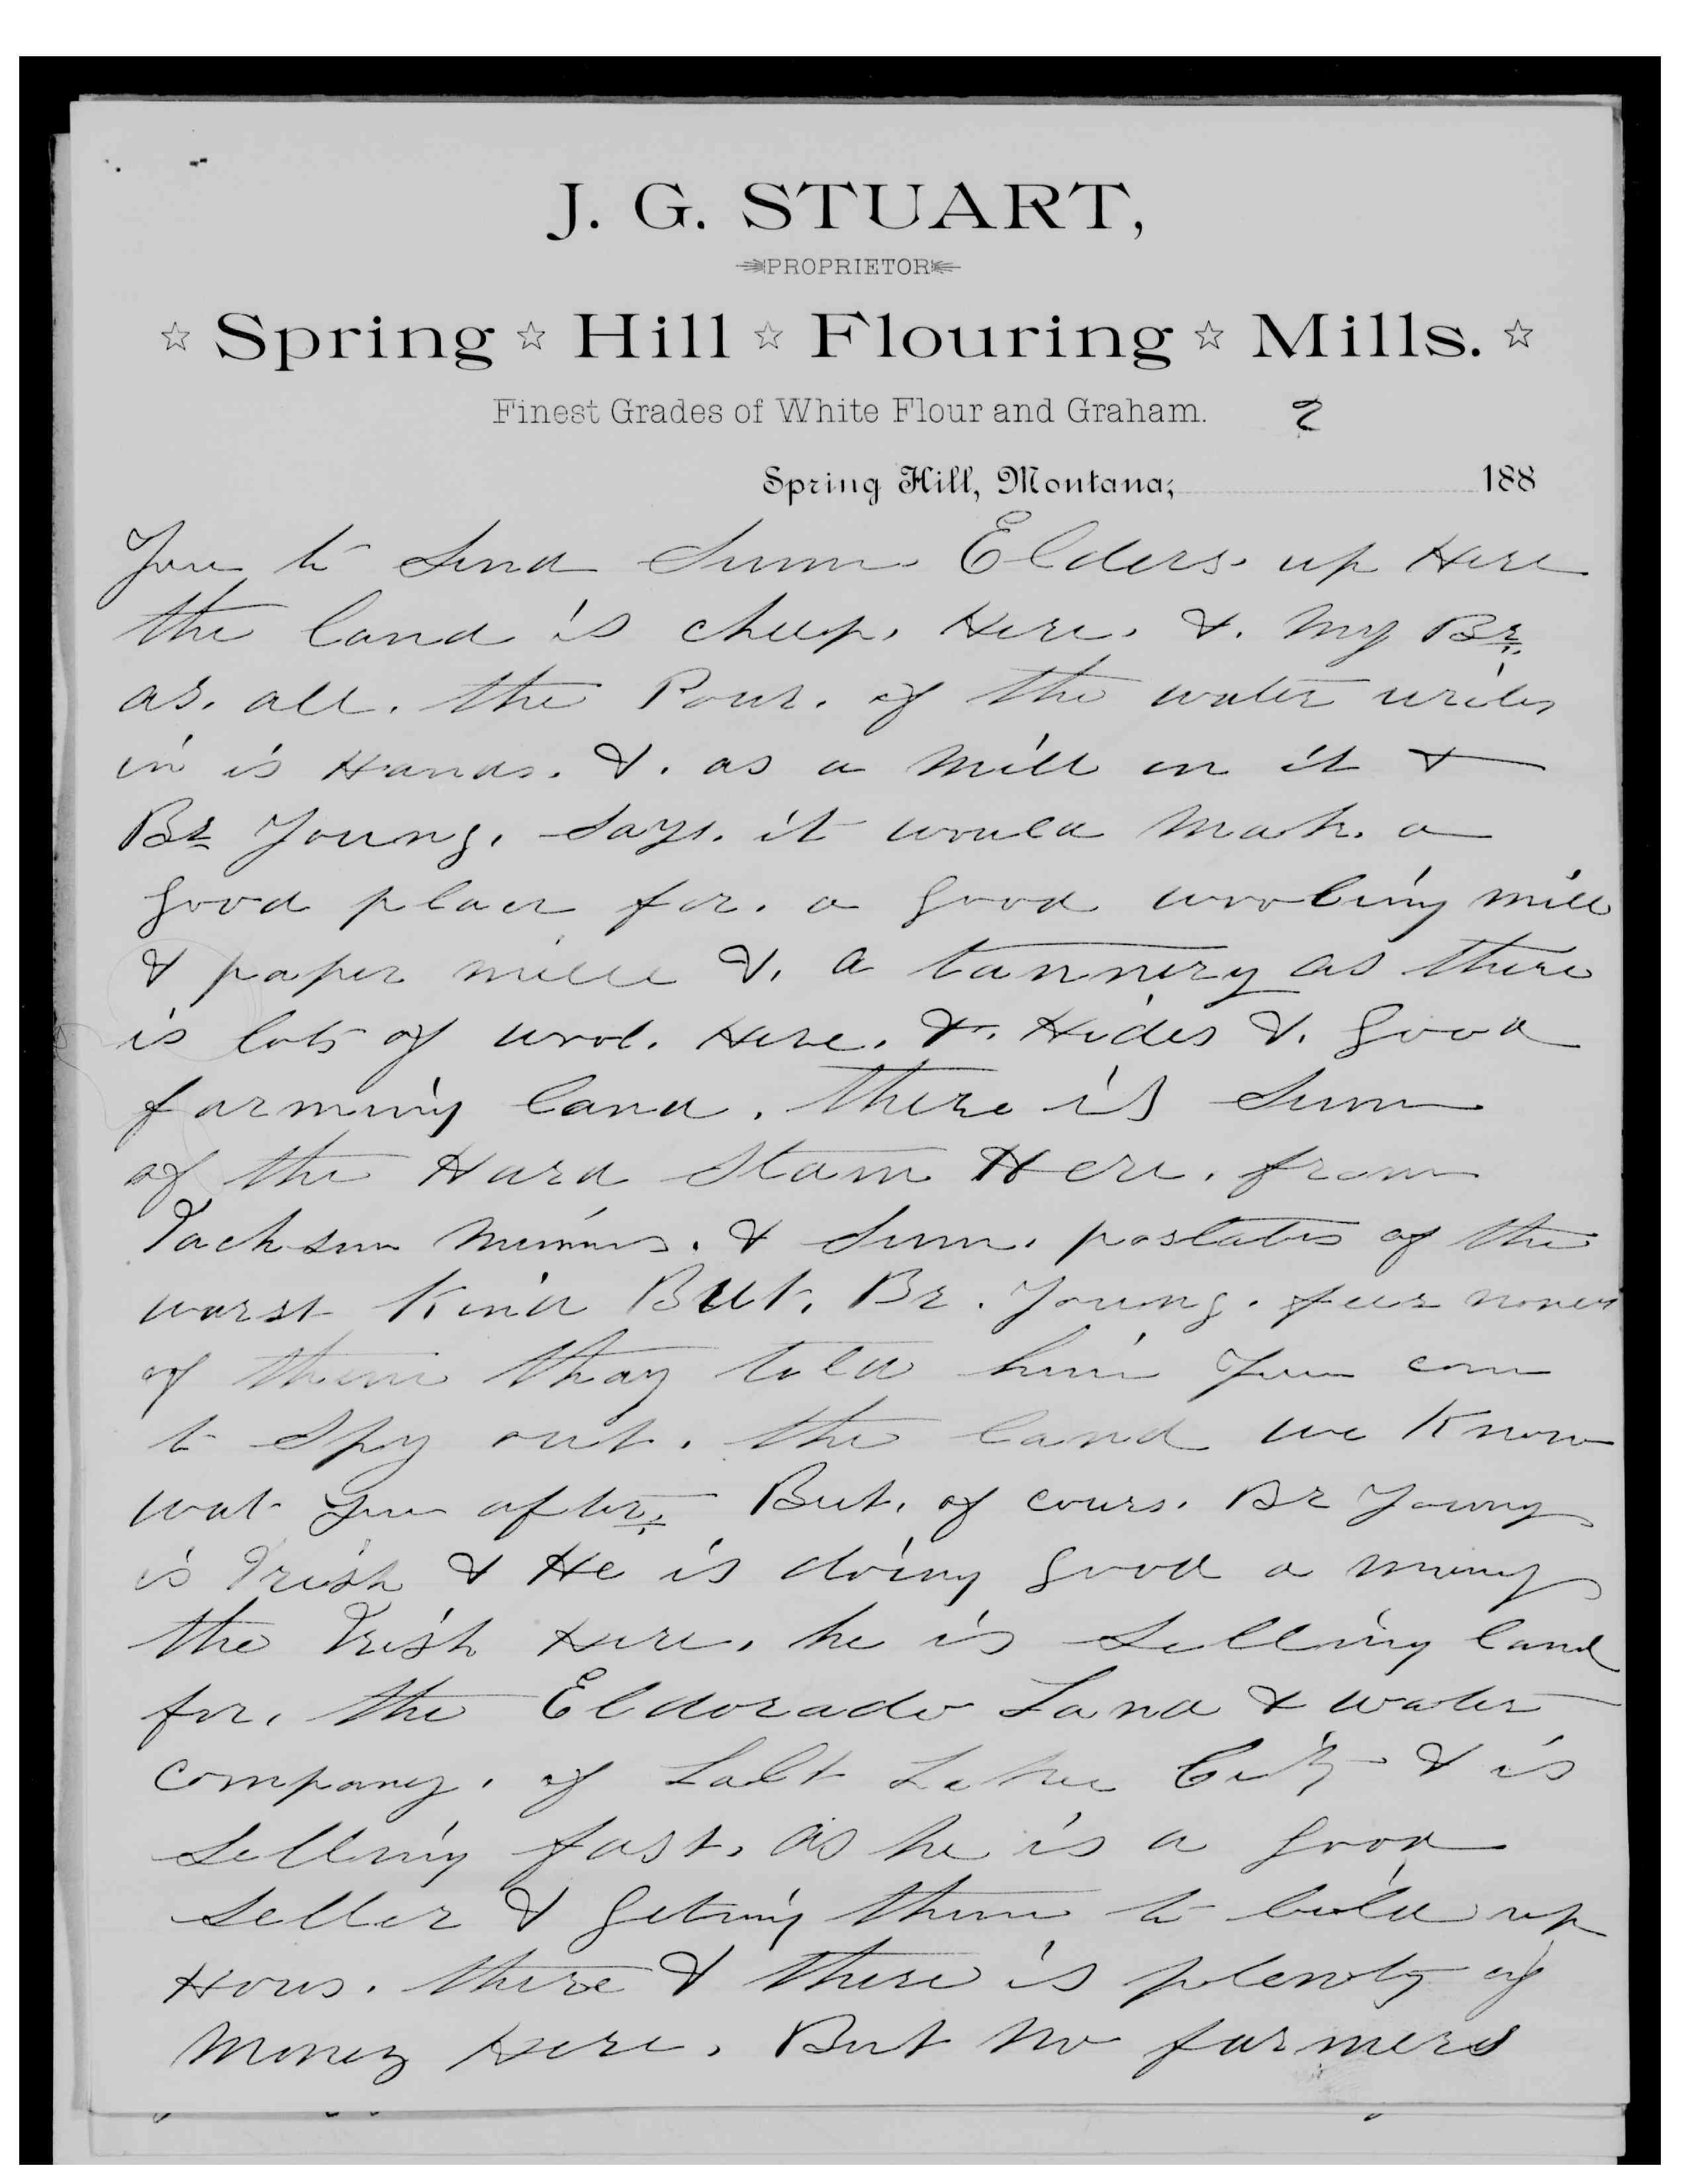 J. G. STUART,
PROPRIETOR
☆ Spring ☆ Hill ☆ Flouring ☆ Mills. ☆
Finest Grades of White Flour and Graham. 2
Spring Hill, Montana; 188
You to Send Sum Elders. up Here
the land is cheep. Here. &. My Br.
as. all. the Pour. of the water writes
in is Hands. &. as a Mill on it &
Br Young. Says. it would Make. a
good place for. a good wooling mill
& paper mill &. a tannery as there
is lots of wool. Here. &. Hides &. good
farming land. there is Sum
of the Hard Stam Here. from
Jackson & Sum. postates of the
worst Kind But. Br. Young. feer nonen
of them thay told him You com
to Spy out. the land we Know
wat You after. But. of cours. Br Young
is Irish & He is doing good a mung
the Irish Here. he is Selling land
for. the Eldorado Land & water
company. of Salt Lake City & is
Selling fast. as he is a good
Seller & geting them to bild up
Hous. there & there is plenty of
Money Here. But no farmers